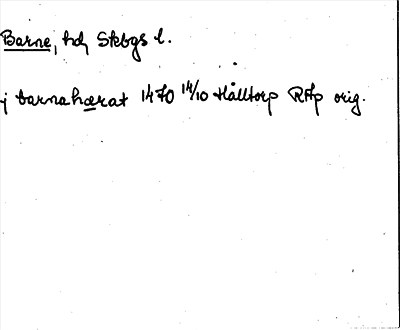 Barne, hd, Skbgs l.
j barnahærat 1470 14/10 Hålltorp RAp orig.